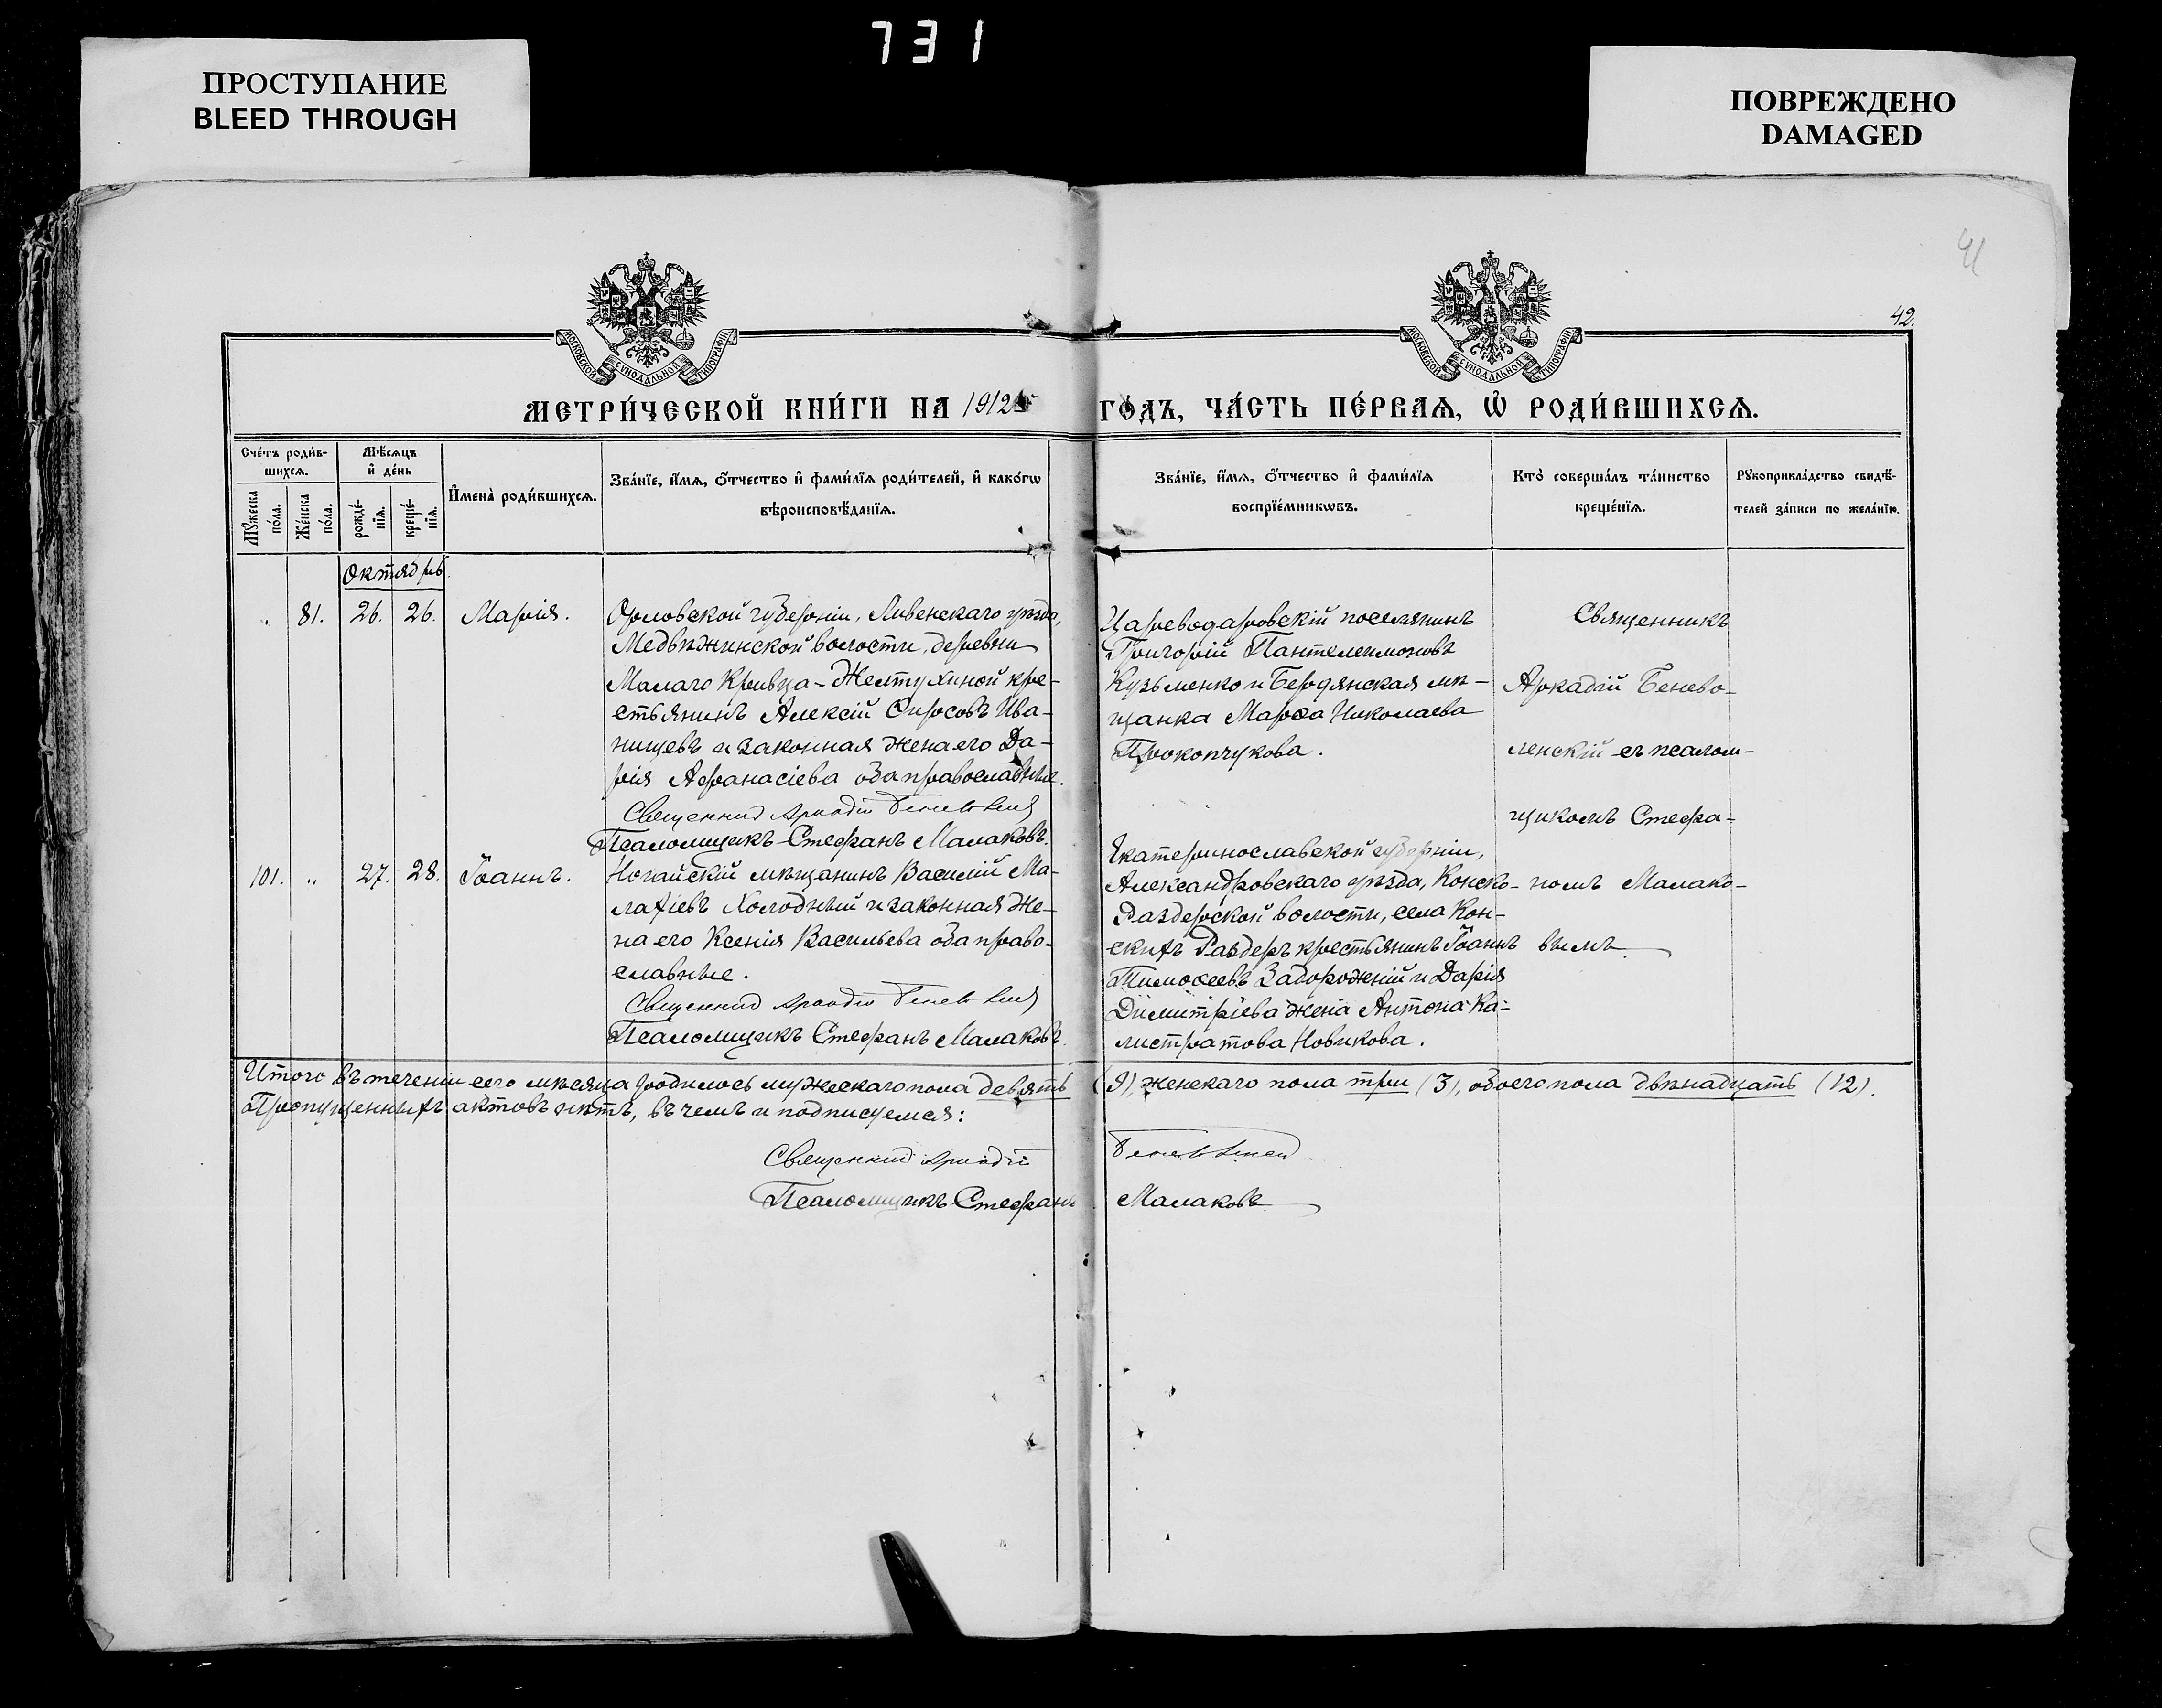 731
ПРОСТУПАНИЕ
BLEED THROUGH
ПОВРЕЖДЕНО
DAMAGED
41
42.
МОСКОВСКОЙ СУНОДАЛЬНОЙ ТИПОГРАФІИ
МОСКОВСКОЙ СУНОДАЛЬНОЙ ТИПОГРАФІИ
МЕТРИ́ЧЕСКОЙ КНИ́ГИ НА 1912 ГО́ДЪ, ЧА́СТЬ ПЕ́РВАѦ, Ѡ҆ РОДИ́ВШИХСѦ.
Сче́тъ роди́в-
шихсѧ.
Мѣ́сѧцъ
и҆ де́нь
Мꙋ́жеска
по́ла.
Же́нска
по́ла.
рожде́-
нїѧ.
креще́-
нїѧ.
И҆мена̀ роди́вшихсѧ.
Зва́нїе, и҆́мѧ, ѻ҆́тчество и҆ фами́лїѧ роди́телей, и҆ како́гѡ
вѣроисповѣ́данїѧ.
Зва́нїе, и҆́мѧ, ѻ҆́тчество и҆ фами́лїѧ
воспрїе́мникѡвъ.
Кто̀ соверша́лъ та́инство
креще́нїѧ.
Рꙋкоприкла́дство свидѣ́-
телей за́писи по жела́нїю.
Октябрь.
" 81. 26. 26. Марія.
Орловской губерніи, Ливенскаго уѣзда,
Медвѣжинской волости, деревни
Малаго Кривца-Желтухиной кре-
стьянинъ Алексій Фирсовъ Ива-
нищевъ и законная жена его Да-
рія Афанасіева оба православные.
Священникъ Аркадій Беневоленскій
Псаломщикъ Стефанъ Малаковъ.
Цареводаровскій поселянинъ
Григорій Пантелеимоновъ
Кузьменко и Бердянская мѣ-
щанка Марѳа Николаева
Прокопчукова.
Священникъ
Аркадій Бенево-
ленскій съ псалом-
щикомъ Стефа-
номъ Малако-
вымъ.
101. " 27. 28. Іоаннъ.
Ногайскій мѣщанинъ Василій Ма-
лахіевъ Холодный и законная же-
на его Ксенія Васильева оба право-
славные.
Священникъ Аркадій Беневоленскій
Псаломщикъ Стефанъ Малаковъ.
Екатеринославской губерніи,
Александровскаго уѣзда, Конско-
Раздорской волости, села Кон-
скихъ Раздоръ крестьянинъ Іоаннъ
Тимоѳеевъ Задорожній и Дарія
Димитріева жена Антона Ка-
листратова Новикова.
Итого въ теченіи сего мѣсяца родилось мужескаго пола девять (9), женскаго пола три (3), обоего пола двѣнадцать (12).
Пропущенныхъ актовъ нѣтъ, въ чемъ и подписуемся:
Священникъ Аркадій Беневоленскій
Псаломщикъ Стефанъ Малаковъ